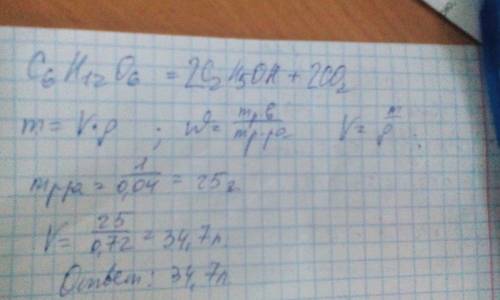 C₆H₁₂O₆ = 2C₂H5OH + 2CO₂
m = V·ρ ; ω = mр.в/mр-ра V = m/ρ ;
mр-ра = 1/0,04 = 25г
V = 25/0,72 = 34,7л
Ответ: 34,7л